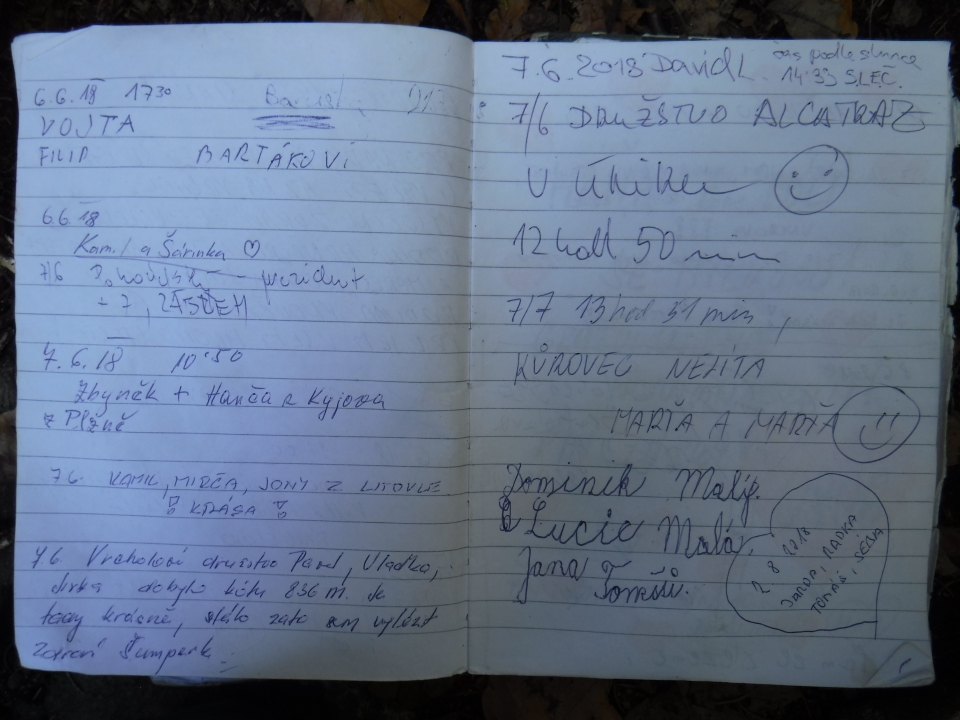 6.6.18 17 30
VOJTA
FILIP BARTÁKOVÍ
6.6.18
Kamil a Šárinka ♡
7/6 prezident
+ 7,
7.6.18 10:50
Zbyněk + Hanča z Kyjova
z Plzně
7.6. KAMIL, MIRČA, JONY Z LITOVLE
KRÁSA
7.6 Vrcholové družstvo Pavel, Vlaďka,
Jirka dobylo kótu 836 m. Je
tady krásně, stálo zato sem vylézt
zdraví Šumperk.
7.6.2018 David L. čas podle slunce
14:33 SLEČ.
7/6 DRUŽSTVO ALCATRAZ
U Úniku
12 hod 50 min
7/7 13 hod 51 min,
KŮROVEC NEŽÍTA
MARŤA A MARŤA
Dominik Malý.
Lucie Malá.
Jana Tomšů.
2 8 2018
JARDA, RADKA
TOMÁŠ,